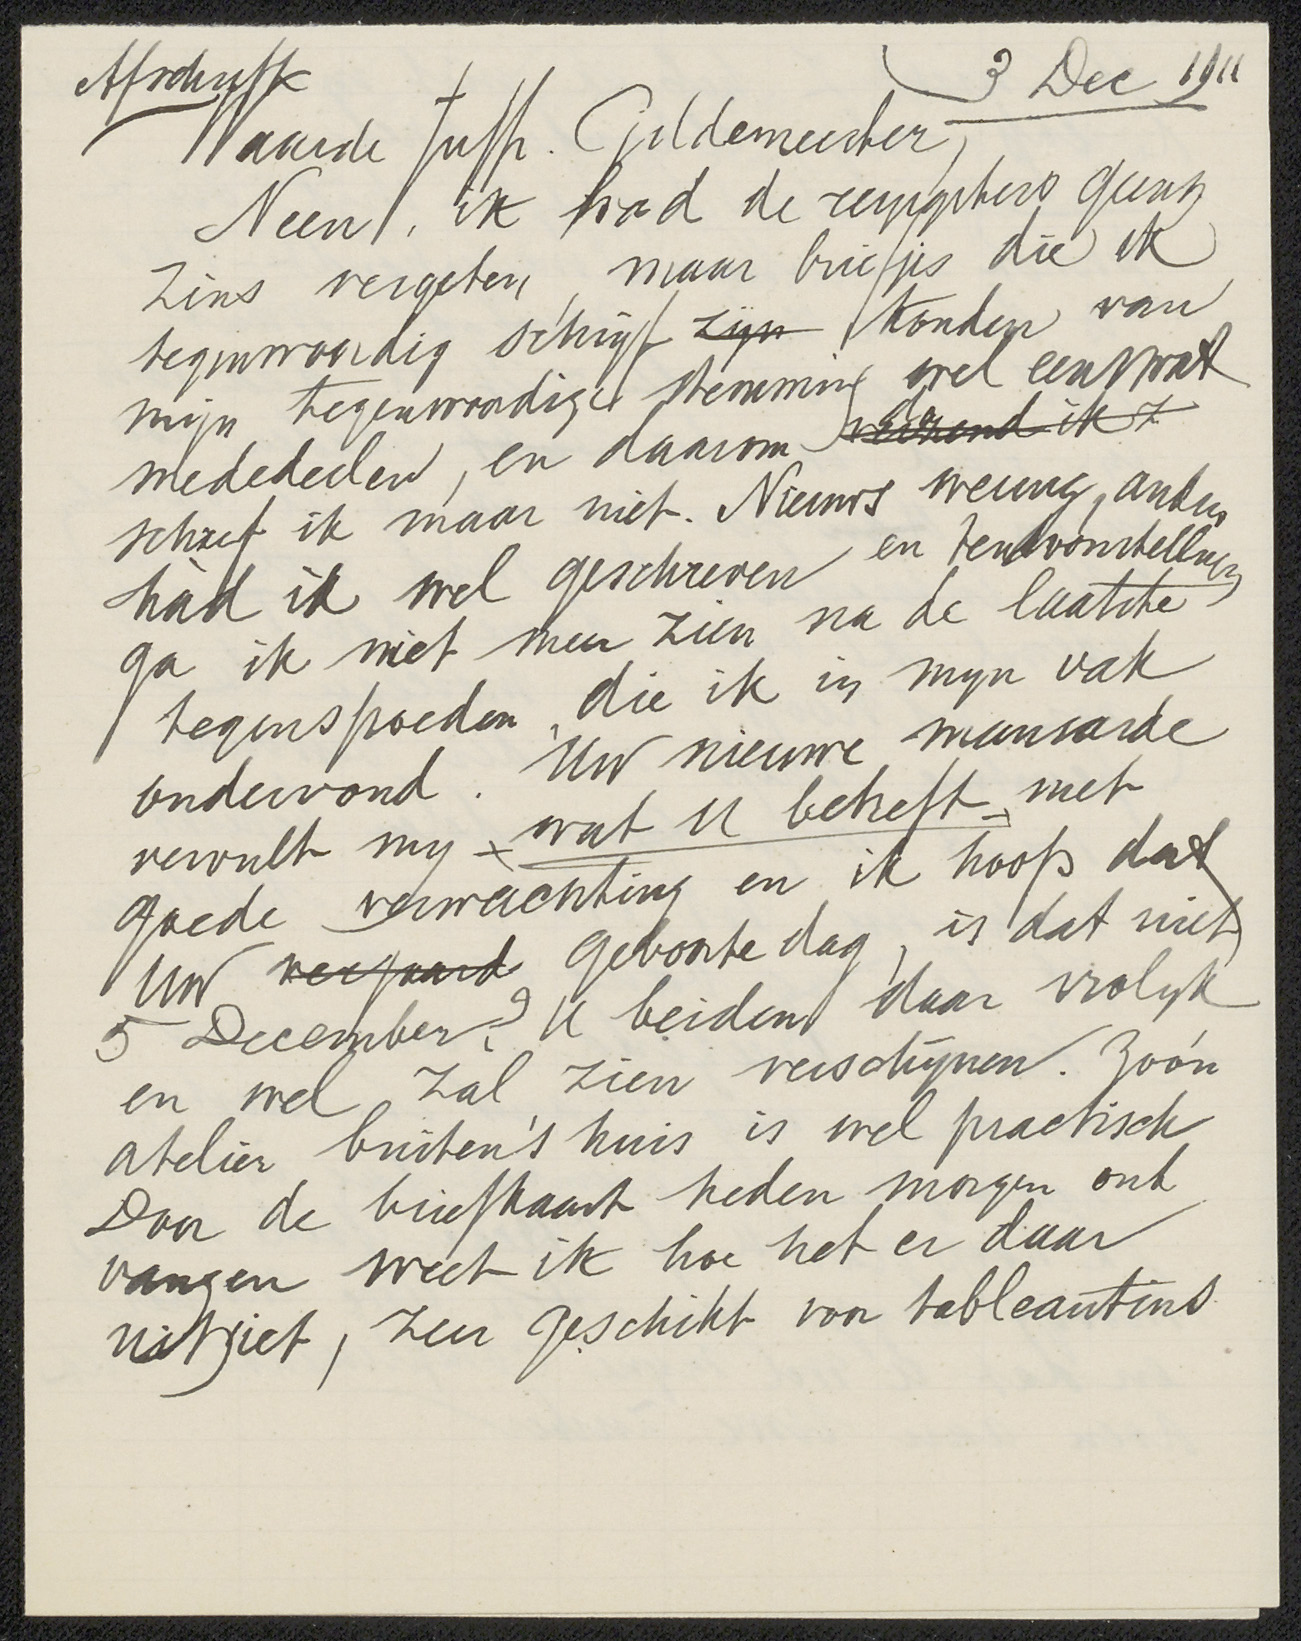 Afschrift
3 Dec 1911
Waarde Juffr. Gildemeester,
Neen, ik had de reizigsters geens
zins vergeten, maar briefjes die ik
tegenwoordig schrijf zijn konden van
mijn tegenwoordige stemming wel eens wat
mededeelen, en daarom verzend ik z
schreef ik maar niet. Nieuws weinig, anders
hàd ik wel geschreven en tentoonstellingen
ga ik niet meer zien na de laatste
tegenspoeden, die ik in mijn vak
ondervond. Uw nieuwe mansarde
vervult mij – wat U betreft – met
goede verwachting en ik hoop dat
Uw verjaard geboortedag, is dat niet
5 December? U beiden daar vrolijk
en wel zal zien verschijnen. Zóó'n
atelier buiten 's huis is wel practisch
Door de briefkaart heden morgen ont
vangen weet ik hoe het er daar
uitziet, zeer geschikt voor tableautins